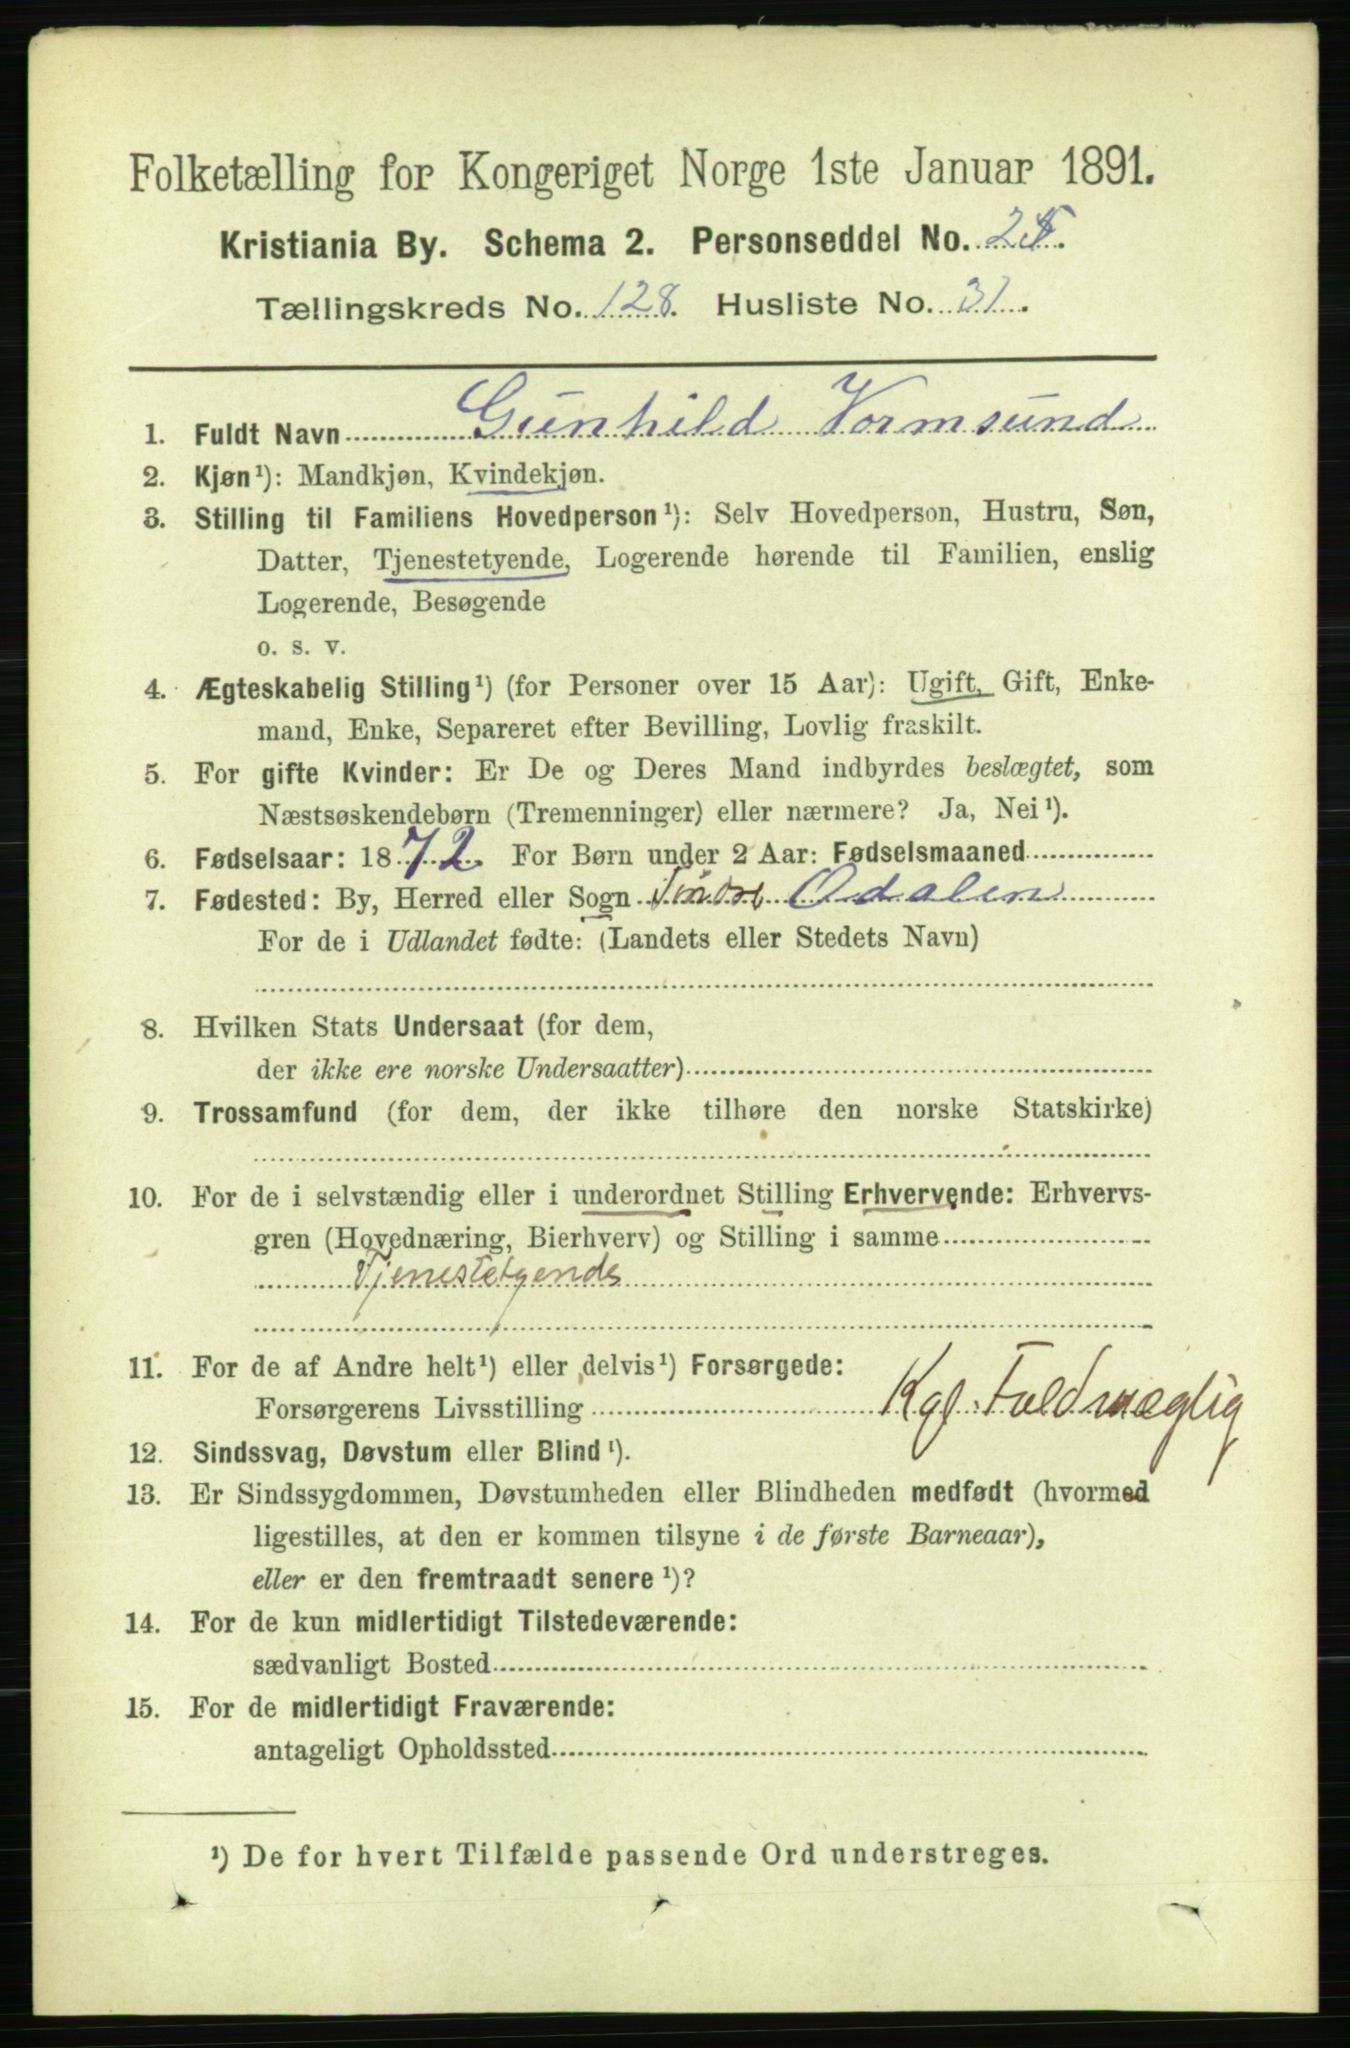 Folketælling for Kongeriget Norge 1ste Januar 1891.
Kristiania By. Schema 2. Personseddel No. 25.
Tællingskreds No. 128. Husliste No. 31.
1. Fuldt Navn Gunhild Vormsund
2. Kjøn¹): Mandkjøn, Kvindekjøn.
3. Stilling til Familiens Hovedperson¹): Selv Hovedperson, Hustru, Søn,
Datter, Tjenestetyende, Logerende hørende til Familien, enslig
Logerende, Besøgende
o. s. v.
4. Ægteskabelig Stilling¹) (for Personer over 15 Aar): Ugift, Gift, Enke-
mand, Enke, Separeret efter Bevilling, Lovlig fraskilt.
5. For gifte Kvinder: Er De og Deres Mand indbyrdes beslægtet, som
Næstsøskendebørn (Tremenninger) eller nærmere? Ja, Nei¹).
6. Fødselsaar: 1872. For Børn under 2 Aar: Fødselsmaaned
7. Fødested: By, Herred eller Sogn Søndre Odalen
For de i Udlandet fødte: (Landets eller Stedets Navn)
8. Hvilken Stats Undersaat (for dem,
der ikke ere norske Undersaatter)
9. Trossamfund (for dem, der ikke tilhøre den norske Statskirke)
10. For de i selvstændig eller i underordnet Stilling Erhvervende: Erhvervs-
gren (Hovednæring, Bierhverv) og Stilling i samme
Tjenestetyende
11. For de af Andre helt¹) eller delvis¹) Forsørgede:
Forsørgerens Livsstilling Kgl. Fuldmægtig
12. Sindssvag, Døvstum eller Blind¹).
13. Er Sindssygdommen, Døvstumheden eller Blindheden medfødt (hvormed
ligestilles, at den er kommen tilsyne i de første Barneaar),
eller er den fremtraadt senere¹)?
14. For de kun midlertidigt Tilstedeværende:
sædvanligt Bosted
15. For de midlertidigt Fraværende:
antageligt Opholdssted
¹) De for hvert Tilfælde passende Ord understreges.